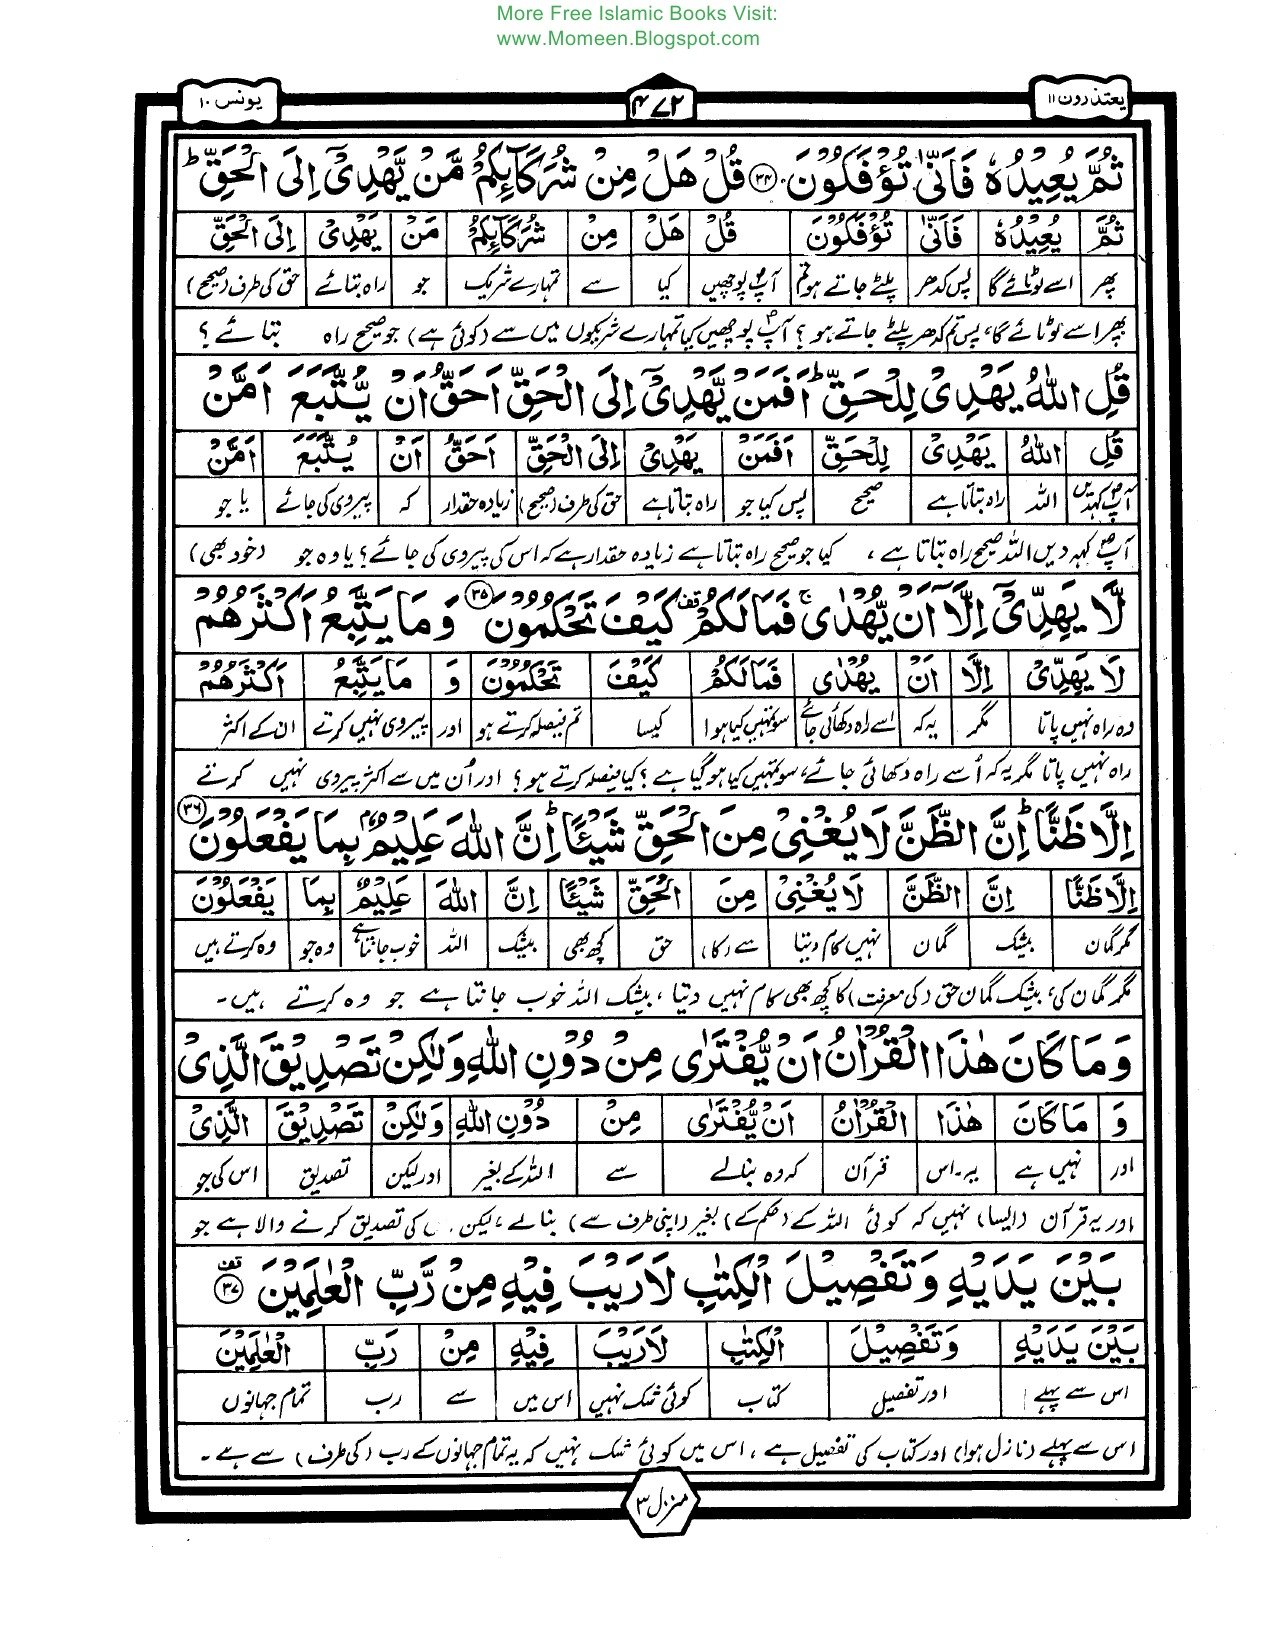 More Free Islamic Books Visit:
www.Momeen.Blogspot.com
یعتذرون ۱۱
۴۷۲
یونس ۱۰
ثُمَّ یُعِیْدُہٗ فَاَنّٰی تُؤْفَکُوْنَ ۝۳۴ قُلْ ھَلْ مِنْ شُرَکَآئِکُمْ مَّنْ یَّھْدِیْٓ اِلَی الْحَقِّ ؕ
ثُمَّ یُعِیْدُہٗ فَاَنّٰی تُؤْفَکُوْنَ قُلْ ھَلْ مِنْ شُرَکَآئِکُمْ مَنْ یَھْدِیْ اِلَی الْحَقِّ
پھر اسے لوٹائے گا پس کدھر پلٹے جاتے ہو تم آپؐ پوچھیں کیا سے تمہارے شریک جو راہ بتائے حق کی طرف (صحیح)
پھر اسے لوٹائے گا، پس تم کدھر پلٹے جاتے ہو؟ آپؐ پوچھیں کیا تمہارے شریکوں میں سے (کوئی ہے) جو صحیح راہ بتائے؟
قُلِ اللّٰہُ یَھْدِیْ لِلْحَقِّ ؕ اَفَمَنْ یَّھْدِیْٓ اِلَی الْحَقِّ اَحَقُّ اَنْ یُّتَّبَعَ اَمَّنْ
قُلِ اللّٰہُ یَھْدِیْ لِلْحَقِّ اَفَمَنْ یَھْدِیْ اِلَی الْحَقِّ اَحَقُّ اَنْ یُتَّبَعَ اَمَّنْ
آپؐ کہدیں اللہ راہ بتاتا ہے صحیح پس کیا جو راہ بتاتا ہے حق کی طرف (صحیح) زیادہ حقدار کہ پیروی کی جائے یا جو
آپؐ کہہ دیں اللہ صحیح راہ بتاتا ہے، کیا جو صحیح راہ بتاتا ہے زیادہ حقدار ہے کہ اس کی پیروی کی جائے؟ یا وہ جو (خود بھی)
لَّا یَھِدِّیْٓ اِلَّآ اَنْ یُّھْدٰی ۚ فَمَا لَکُمْ قف کَیْفَ تَحْکُمُوْنَ ۝۳۵ وَمَا یَتَّبِعُ اَکْثَرُھُمْ
لَا یَھِدِّیْ اِلَّا اَنْ یُھْدٰی فَمَالَکُمْ کَیْفَ تَحْکُمُوْنَ وَ مَا یَتَّبِعُ اَکْثَرُھُمْ
وہ راہ نہیں پاتا مگر یہ کہ اسے راہ دکھائی جائے سو تمہیں کیا ہوا کیسا تم فیصلہ کرتے ہو اور پیروی نہیں کرتے ان کے اکثر
راہ نہیں پاتا مگر یہ کہ اُسے راہ دکھائی جائے، سو تمہیں کیا ہو گیا ہے؟ کیا فیصلہ کرتے ہو؟ اور اُن میں سے اکثر پیروی نہیں کرتے
اِلَّا ظَنًّا ؕ اِنَّ الظَّنَّ لَا یُغْنِیْ مِنَ الْحَقِّ شَیْئًا ؕ اِنَّ اللّٰہَ عَلِیْمٌۢ بِمَا یَفْعَلُوْنَ ۝۳۶
اِلَّا ظَنًّا اِنَّ الظَّنَّ لَا یُغْنِیْ مِنَ الْحَقِّ شَیْئًا اِنَّ اللّٰہَ عَلِیْمٌ بِمَا یَفْعَلُوْنَ
مگر گمان بیشک گمان نہیں کام دیتا سے (کا) حق کچھ بھی بیشک اللہ خوب جانتا ہے وہ جو وہ کرتے ہیں
مگر گمان کی، بیشک گمان حق (کی معرفت) کا کچھ بھی کام نہیں دیتا، بیشک اللہ خوب جانتا ہے جو وہ کرتے ہیں۔
وَمَا کَانَ ھٰذَا الْقُرْاٰنُ اَنْ یُّفْتَرٰی مِنْ دُوْنِ اللّٰہِ وَلٰکِنْ تَصْدِیْقَ الَّذِیْ
وَ مَا کَانَ ھٰذَا الْقُرْاٰنُ اَنْ یُّفْتَرٰی مِنْ دُوْنِ اللّٰہِ وَلٰکِنْ تَصْدِیْقَ الَّذِیْ
اور نہیں ہے یہ۔اس قرآن کہ وہ بنالے سے اللہ کے بغیر اور لیکن تصدیق اس کی جو
اور یہ قرآن (ایسا) نہیں کہ کوئی اللہ کے (حکم کے) بغیر (اپنی طرف سے) بنالے، لیکن کی تصدیق کرنے والا ہے جو
بَیْنَ یَدَیْہِ وَتَفْصِیْلَ الْکِتٰبِ لَا رَیْبَ فِیْہِ مِنْ رَّبِّ الْعٰلَمِیْنَ ۝۳۷ قف
بَیْنَ یَدَیْہِ وَتَفْصِیْلَ الْکِتٰبِ لَا رَیْبَ فِیْہِ مِنْ رَبِّ الْعٰلَمِیْنَ
اس سے پہلے اور تفصیل کتاب کوئی شک نہیں اس میں سے رب تمام جہانوں
اس سے پہلے (نازل ہوا) اور کتاب کی تفصیل ہے، اس میں کوئی شک نہیں کہ یہ تمام جہانوں کے رب (کی طرف) سے ہے۔
منزل ۳